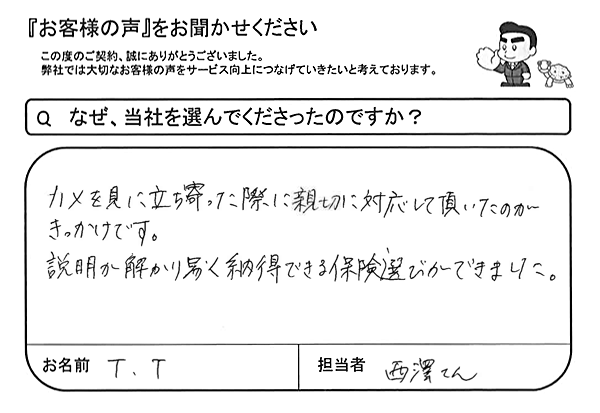 『お客様の声』をお聞かせください
この度のご契約、誠にありがとうございました。
弊社では大切なお客様の声をサービス向上につなげていきたいと考えております。
Q なぜ、当社を選んでくださったのですか？
カメを見に立ち寄った際に親切に対応して頂いたのが
きっかけです。
説明が解かり易く納得できる保険選びができました。
お名前 T.T
担当者 西澤さん